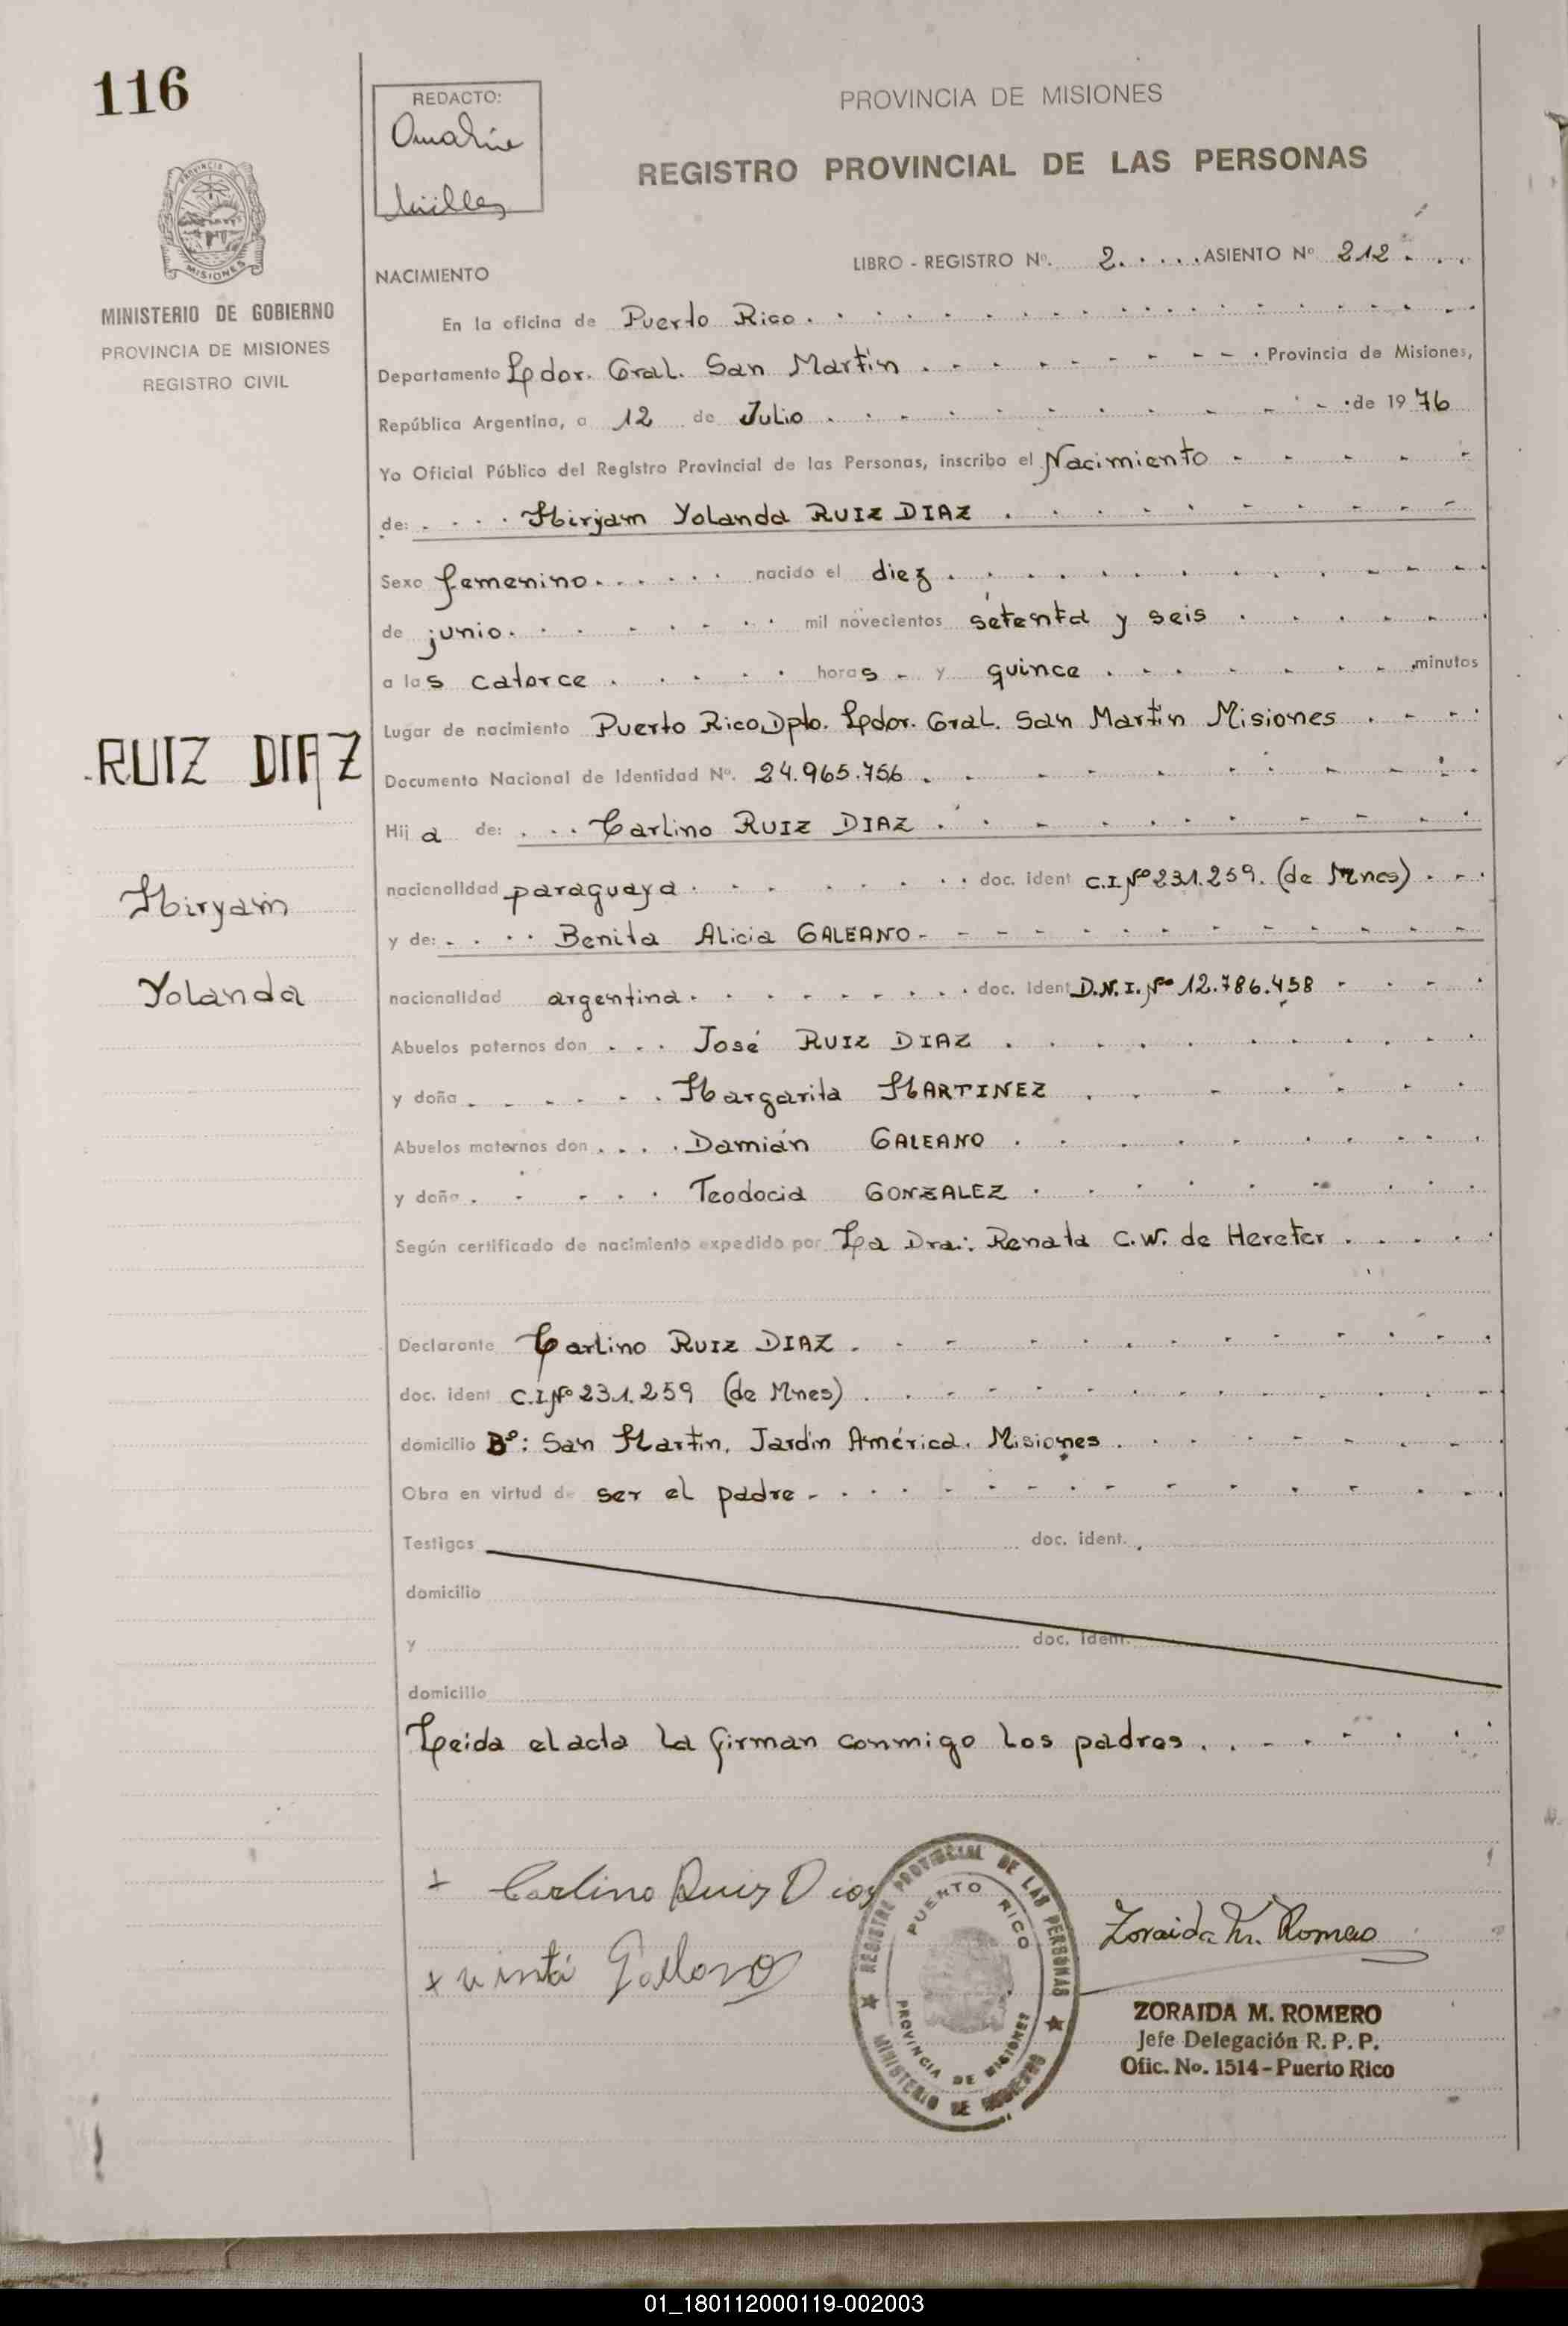 116
REDACTO:
PROVINCIA DE MISIONES
REGISTRO PROVINCIAL DE LAS PERSONAS
PROVINCIA
MISIONES
MINISTERIO DE GOBIERNO
PROVINCIA DE MISIONES
REGISTRO CIVIL
LIBRO - REGISTRO Nº. 2. . . . . . ASIENTO Nº 212 . . .
NACIMIENTO
En la oficina de Puerto Rico.
Departamento Ldor. Gral. San Martín . - - - - - - . Provincia de Misiones,
República Argentina, a 12 de Julio . . . . de 1976
Yo Oficial Público del Registro Provincial de las Personas, inscribo el Nacimiento - - - -
de: . . . . Miryam Yolanda RUIZ DIAZ . . . .
Sexo femenino. . . . . . nacido el diez . . . .
de junio. . . . . mil novecientos setenta y seis . . . .
a las catorce . . . . . horas - y quince . . . . minutos
Lugar de nacimiento Puerto Rico, Dpto. Lpdor. Gral. San Martín Misiones . - -
RUIZ DIAZ
Documento Nacional de Identidad Nº. 24.965.756 . - - -
Hija de: . . . Carlino RUIZ DIAZ . . - - -
Miryam
nacionalidad paraguaya . . . . doc. ident C.I.Nº 231.259. (de Mnes) . - .
y de: - . . . Benita Alicia GALEANO - - - - -
Yolanda
nacionalidad argentina. . . . . doc. ident D.N.I. Nº 12.786.458 - . - .
Abuelos paternos don . . . José RUIZ DIAZ . . . .
y doña . - - - . . Margarita MARTINEZ . - . .
Abuelos maternos don . . . . Damián GALEANO . . . .
y doña . - - . . . Teodocia GONZALEZ . . . .
Según certificado de nacimiento expedido por La Dra.: Renata C.W. de Hereter . . . .
Declarante Carlino RUIZ DIAZ . - - - -
doc. ident C.I.Nº 231.259 (de Mnes) . . - - -
domicilio Bº: San Martín, Jardín América. Misiones . . - - -
Obra en virtud de ser el padre - . . . - - -
Testigos doc. ident.
domicilio
y doc. ident.
domicilio
Leida el acta la firman conmigo los padres . . - . - .
+ Carlino Ruiz Dias
Zoraida M. Romero
REGISTRO PROVINCIAL DE LAS PERSONAS
PUERTO RICO
PROVINCIA DE MISIONES
MINISTERIO DE GOBIERNO
ZORAIDA M. ROMERO
Jefe Delegación R. P. P.
Ofic. No. 1514 - Puerto Rico
01_180112000119-002003